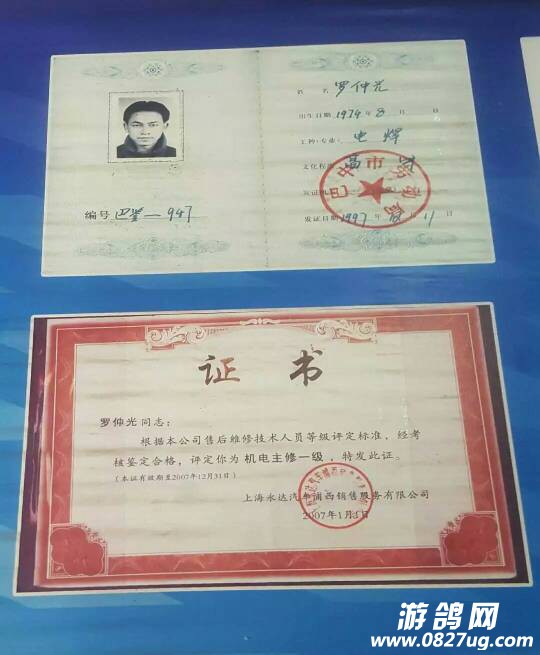 姓 名 罗仲光
出生日期 1974 年 8 月
工种(专业) 电焊
文化程度
发证日期 1997 年 月 11 日
编号 巴鉴—947
巴中市劳动局
证书
罗仲光同志:
根据本公司售后维修技术人员等级评定标准,经考
核鉴定合格,评定你为机电主修一级,特发此证。
(本证有效期至2007年12月31日)
上海永达汽车浦西销售服务有限公司
2007年1月1日
游鸽网
www.0827ug.com